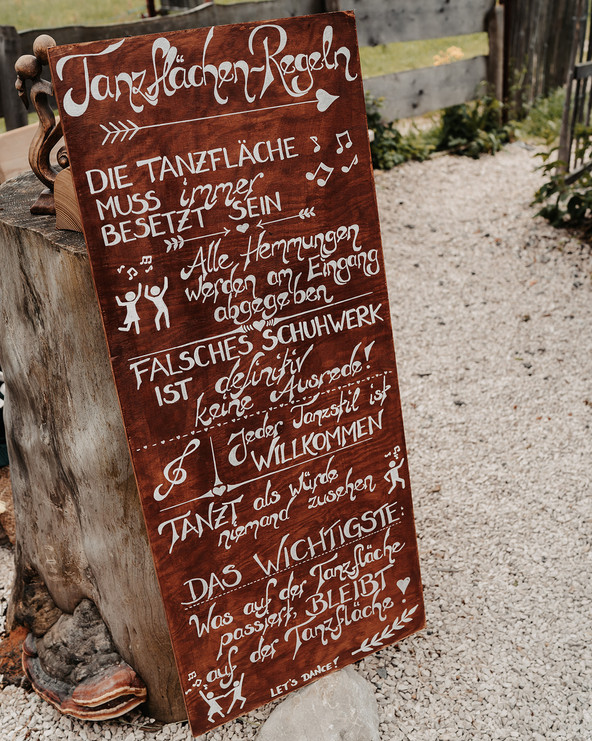 Tanzflächen-Regeln
DIE TANZFLÄCHE
MUSS immer
BESETZT SEIN
Alle Hemmungen
werden am Eingang
abgegeben
FALSCHES SCHUHWERK
IST definitiv
keine Ausrede!
Jeder Tanzstil ist
WILLKOMMEN
TANZT als würde
niemand zusehen
DAS WICHTIGSTE:
Was auf der Tanzfläche
passiert, BLEIBT
auf der Tanzfläche!
LET'S DANCE!